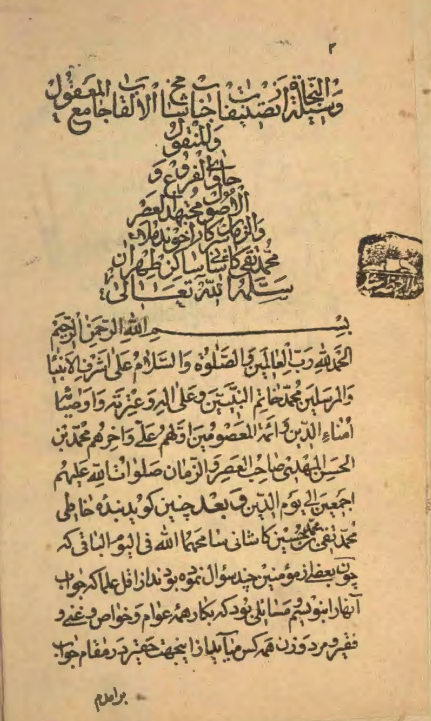 ۲
وسیلة النجاة از تصنیفات جناب مستطاب شامخ الالقاب جامع المعقول
والمنقول
حاوی الفروع و
الاصول مجتهد العصر
والزمان سرکار آخوند ملا
محمد تقی کاشانی ساکن طهران
سلمه الله تعالی
بسم الله الرحمن الرحیم
الحمد لله رب العالمین والصلوة والسلام علی اشرف الانبیا
والمرسلین محمد خاتم النبیین وعلی اله وعترته واوصیائه
امناء الدین وائمة المعصومین اولهم علی واخرهم محمد بن
الحسن المهدی صاحب العصر والزمان صلوات الله علیهم
اجمعین الی یوم الدین و بعد چنین کوید بنده خاطی
محمد تقی بن محمد حسین کاشانی سامحهما الله فی الیوم الباقی که
چون بعضی از مؤمنین چند سؤال نموده بودند از اقل علما که جواب
آنها را بنویسم و مسائلی بود که بکار همه عوام و خواص و غنی و
فقیر و مرد و زن همه کس می‌آید از اینجهت حقیر در مقام جواب
برامدم